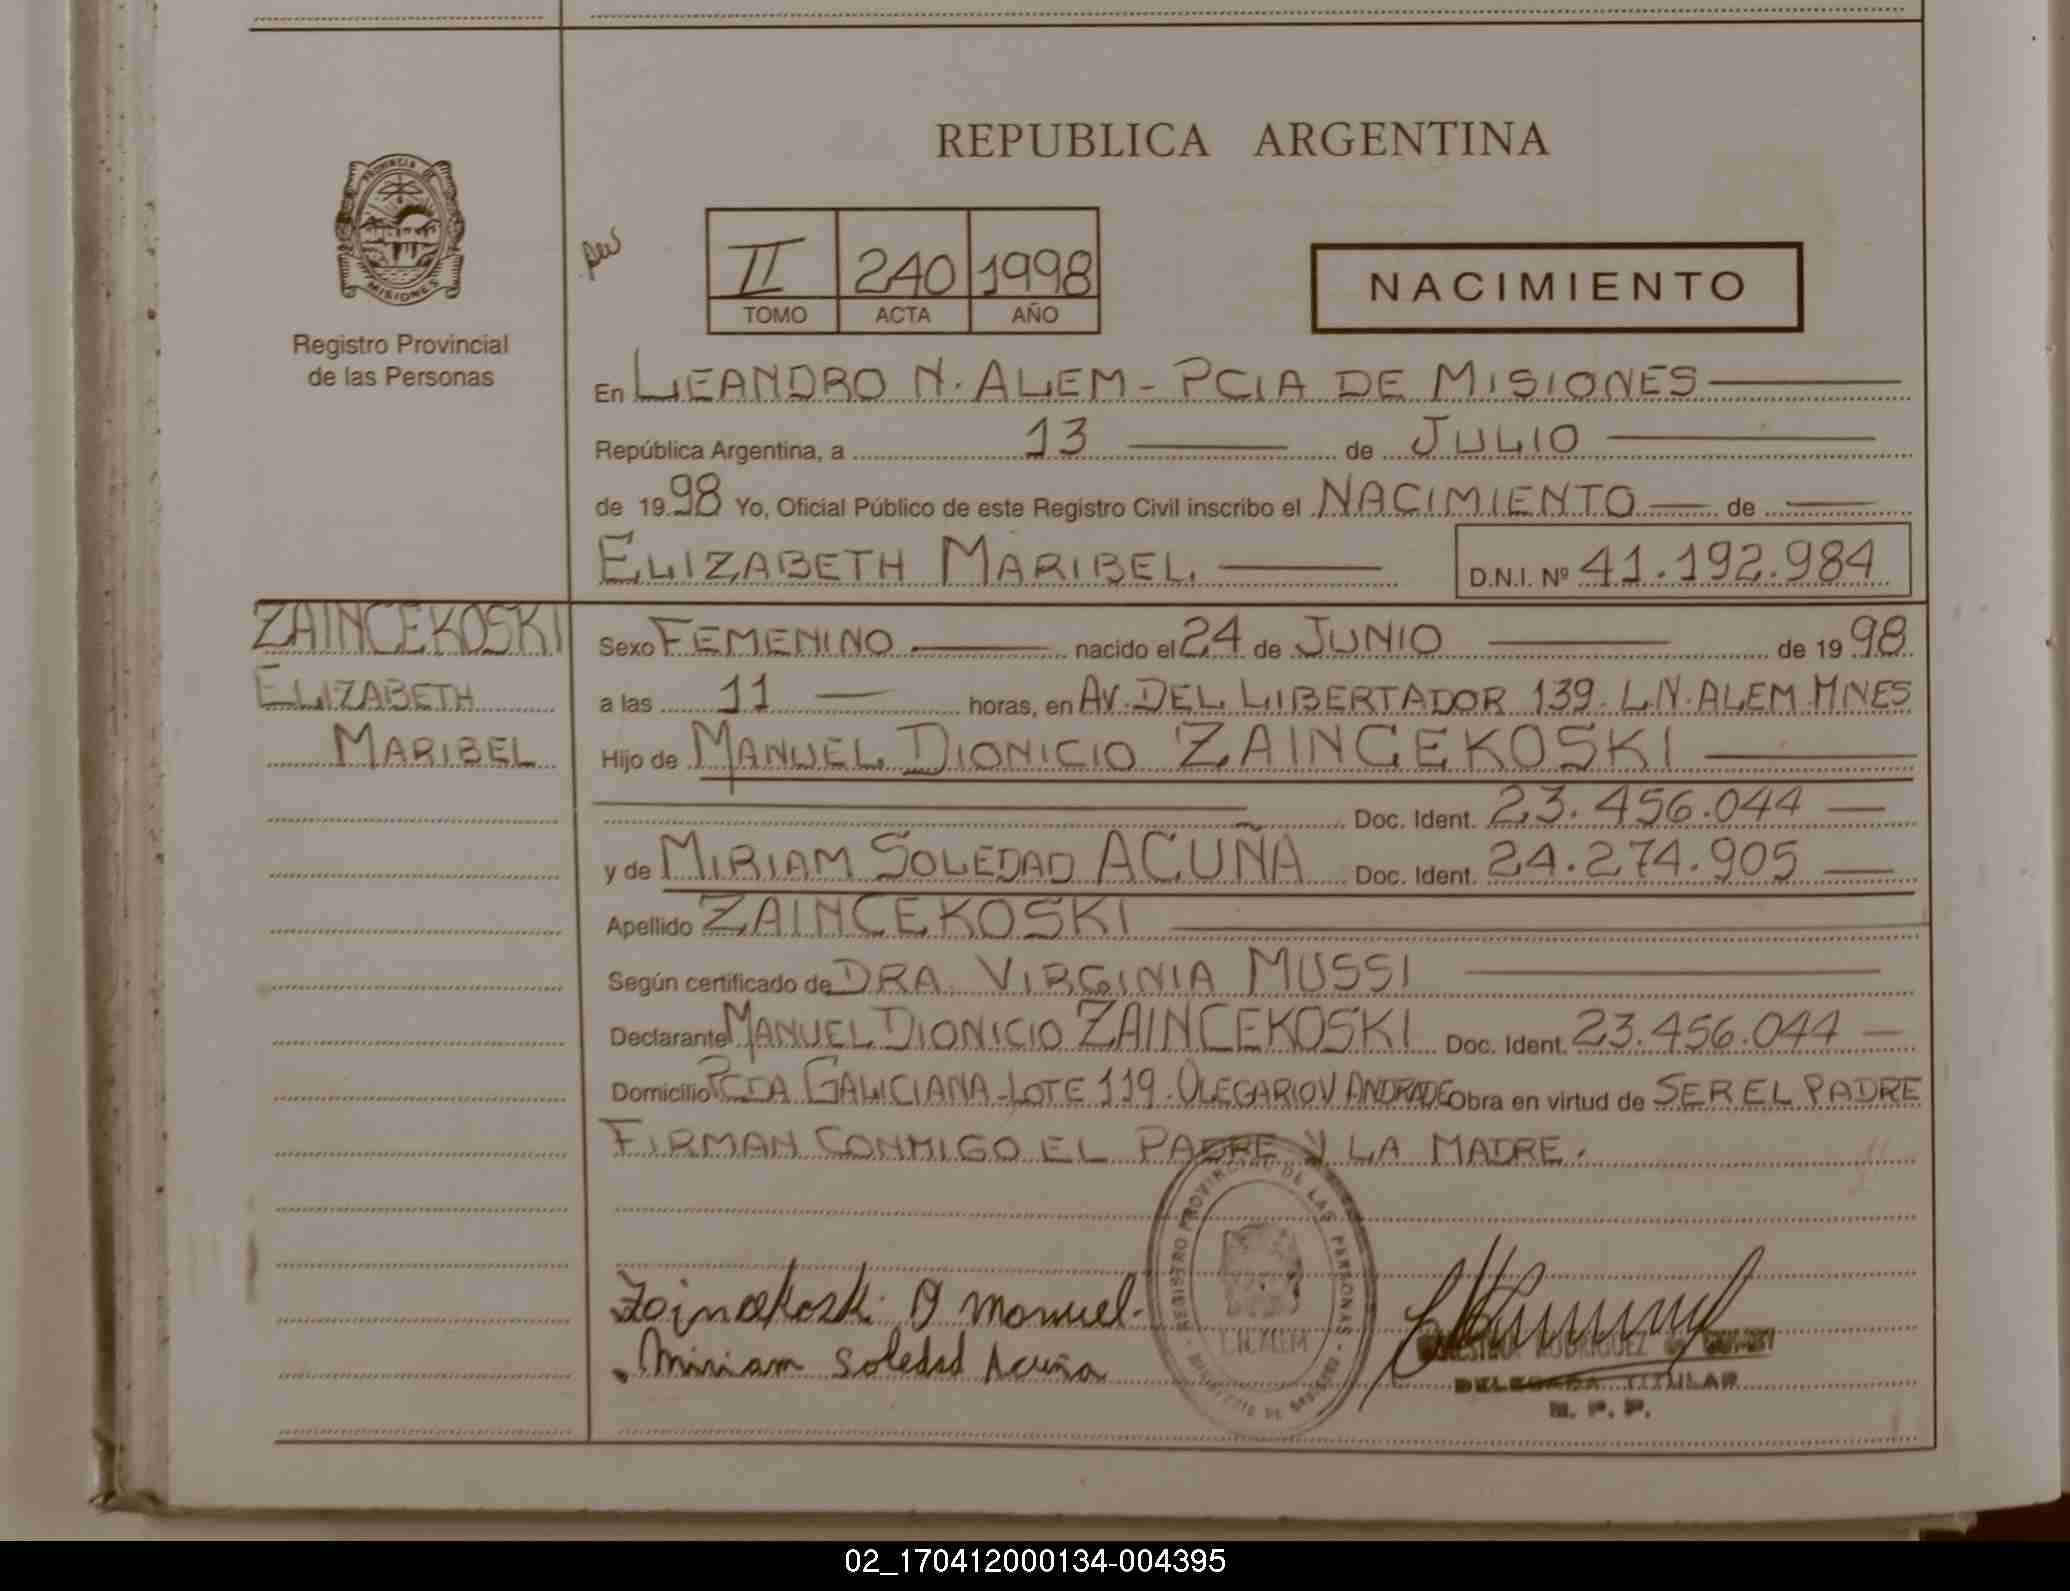 REPUBLICA ARGENTINA
PROVINCIA DE
MISIONES
Registro Provincial
de las Personas
II 240 1998
TOMO ACTA AÑO
NACIMIENTO
En LEANDRO N. ALEM - PCIA DE MISIONES
República Argentina, a 13 de JULIO
de 1998 Yo, Oficial Público de este Registro Civil inscribo el NACIMIENTO de
ELIZABETH MARIBEL D.N.I. Nº 41.192.984
ZAINCEKOSKI
ELIZABETH
MARIBEL
Sexo FEMENINO nacido el 24 de JUNIO de 1998
a las 11 horas, en AV. DEL LIBERTADOR 139. L.N. ALEM MNES
Hijo de MANUEL DIONICIO ZAINCEKOSKI
Doc. Ident. 23.456.044
y de MIRIAM SOLEDAD ACUÑA Doc. Ident. 24.274.905
Apellido ZAINCEKOSKI
Según certificado de DRA. VIRGINIA MUSSI
Declarante MANUEL DIONICIO ZAINCEKOSKI Doc. Ident. 23.456.044
Domicilio PCDA GALICIANA - LOTE 119 - OLEGARIO V ANDRADE Obra en virtud de SER EL PADRE
FIRMAN CONMIGO EL PADRE Y LA MADRE.
REGISTRO PROVINCIAL DE LAS PERSONAS
L.N. ALEM
Zaincekoski D Manuel.
Miriam Soledad Acuña
RODRIGUEZ
DELEGADA TITULAR
R. P. P.
02_170412000134-004395